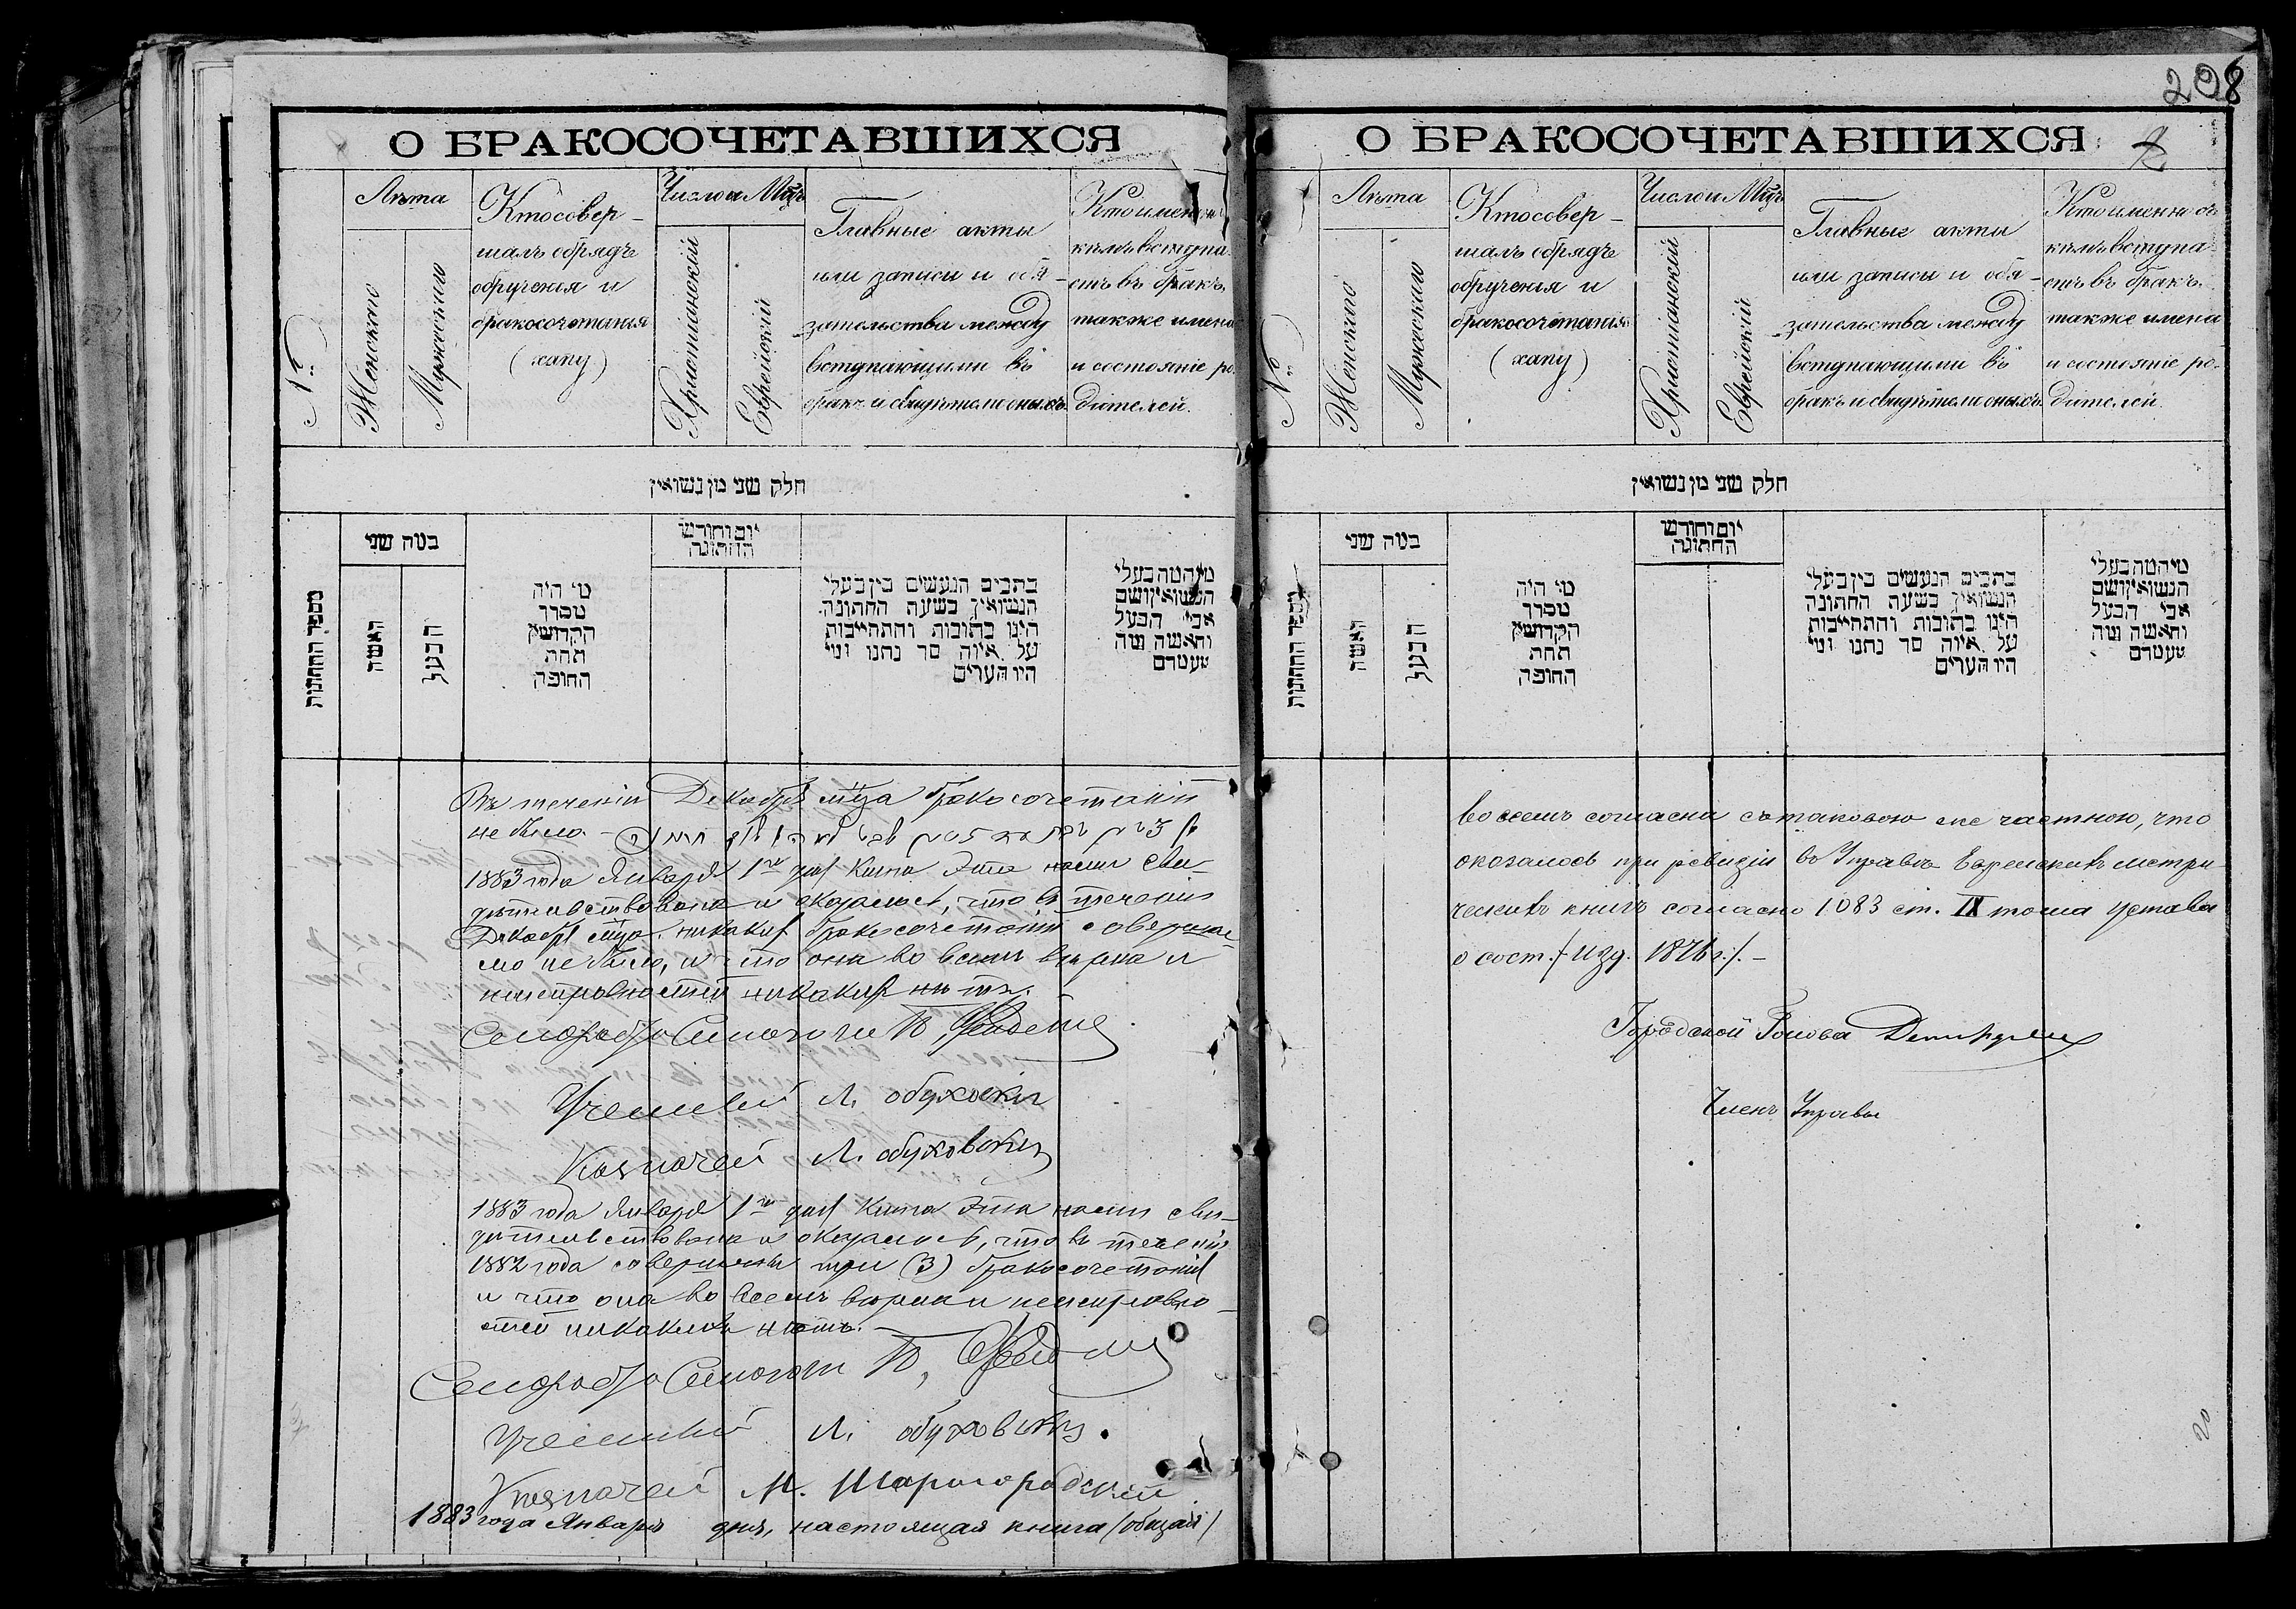 О БРАКОСОЧЕТАВШИХСЯ
№
Лѣта
Женскаго
Мужескаго
Кто совер-
шалъ обрядъ
обрученія и
бракосочетанія
(хапу)
Число и Мцъ
Христіанскій
Еврейскій
Главные акты
или записи и обя-
зательства между
вступающими въ
бракъ и свидѣтели оныхъ.
Кто именно съ
кѣмъ вступа-
етъ въ бракъ.
также имена
и состояніе ро-
дителей.
חלק שני מן נשואין
מספר החתונות
כמה שני
האשה
הבעל
מי היה
מסדר
הקדושין
תחת
החופה
יום וחודש
החתונה
כתבים הנעשים בין בעלי
הנשואין בשעת החתונה
היינו כתובות והתחייבות
על איזה סך נתנו ומי
היו העדים
מי המה בעלי
הנשואין ושם
אבי הבעל
והאשה ומה
מעמדם
Въ теченіи Декабря мѣца бракосочетаній
не было.
1883 года Января 1го дня Книга Эта нами сви-
дѣтельствована и оказалось, что въ теченіи
Декабря мѣца никакихъ бракосочетаній соверше-
но не было, и что она во всемъ вѣрна и
неисправностей никакихъ нѣтъ.
Ученый Л. Обуховскій
Казначей Л. Обуховскій
1883 года Января 1го дня Книга Эта нами сви-
дѣтельствована и оказалось, что въ теченіи
1882 года совершены три (3) бракосочетанія
и что она во всемъ вѣрна и неисправно-
стей никакихъ нѣтъ.
Ученый Л. Обуховскій.
Казначей М. Шаргородскій
1883 года Января дня, настоящая книга /общая/
208
О БРАКОСОЧЕТАВШИХСЯ
№
Лѣта
Женскаго
Мужескаго
Кто совер-
шалъ обрядъ
обрученія и
бракосочетанія
(хапу)
Число и Мцъ
Христіанскій
Еврейскій
Главные акты
или записи и обя-
зательства между
вступающими въ
бракъ и свидѣтели оныхъ.
Кто именно съ
кѣмъ вступа-
етъ въ бракъ.
также имена
и состояніе ро-
дителей.
חלק שני מן נשואין
מספר החתונות
כמה שני
האשה
הבעל
מי היה
מסדר
הקדושין
תחת
החופה
יום וחודש
החתונה
כתבים הנעשים בין בעלי
הנשואין בשעת החתונה
היינו כתובות והתחייבות
על איזה סך נתנו ומי
היו העדים
מי המה בעלי
הנשואין ושם
אבי הבעל
והאשה ומה
מעמדם
во всемъ согласна съ таковою же частною, что
оказалось при ревизіи въ Управѣ Еврейскихъ метри
ческихъ книгъ согласно 1083 ст. IX тома устава
о сост. /изд. 1876 г./.-
Городской Голова
Членъ Управы